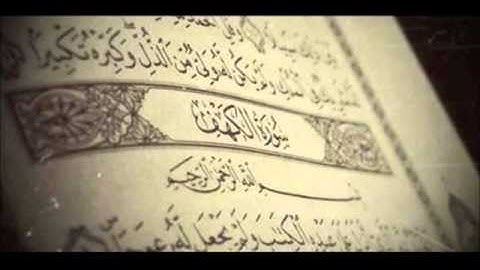 فِي الْمُلْكِ وَلَمْ يَكُن لَّهُ وَلِيٌّ مِّنَ الذُّلِّ وَكَبِّرْهُ تَكْبِيرًا
سُورَةُ الْكَهْفِ
بِسْمِ اللَّهِ الرَّحْمَٰنِ الرَّحِيمِ
عَلَىٰ عَبْدِهِ الْكِتَابَ وَلَمْ يَجْعَل لَّهُ عِوَجًا